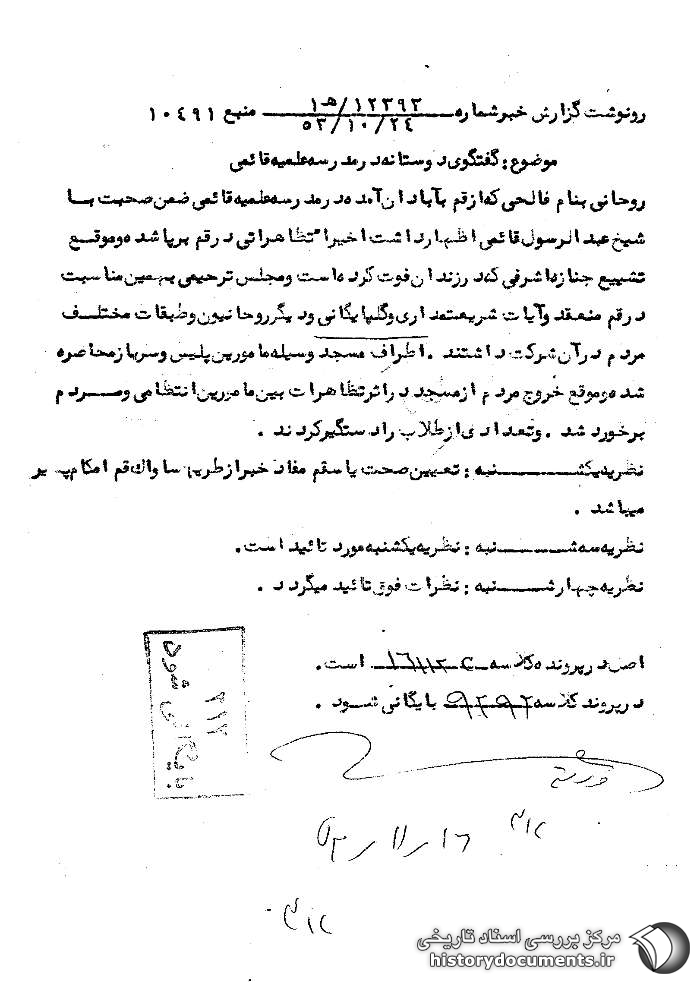 رونوشت گزارش خبر شماره ۱۲۳۹۲/هـ۱ منبع ۱۰۴۹۱
۵۳/۱۰/۲۴
موضوع : گفتگوی دوستانه در مدرسه علمیه قائمی
روحانی بنام فالحی که از قم بآبادان آمده در مدرسه علمیه قائمی ضمن صحبت با
شیخ عبد الرسول قائمی اظهار داشت اخیرا تظاهراتی در قم برپا شده و موقع
تشییع جنازه اشرفی که در زندان فوت کرده است و مجلس ترحیمی بهمین مناسبت
در قم منعقد و آیات شریعتمداری و گلپایگانی و دیگر روحانیون و طبقات مختلف
مردم در آن شرکت داشتند . اطراف مسجد وسیله مامورین پلیس و سرباز محاصره
شده و موقع خروج مردم از مسجد در اثر تظاهرات بین مامورین انتظامی و مردم
برخورد شد . و تعدادی از طلاب را دستگیر کردند .
نظریه یکشنبه : تعیین صحت یا سقم مفاد خبر از طریق ساواک قم امکام پذیر
میباشد .
نظریه سه شنبه : نظریه یکشنبه مورد تائید است .
نظریه چهارشنبه : نظرات فوق تائید میگردد .
اصل در پرونده کلاسه است .
در پرونده کلاسه ۹۲۹۲ بایگانی شود .
۳۱۲
بایگانی شود
۳۱۲
۱۶ ر ۱۱ ر ۵۳
۳۱۲
مرکز بررسی اسناد تاریخی
historydocuments.ir